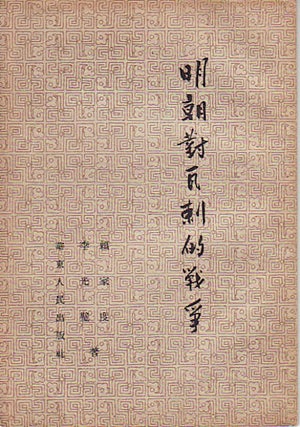 明朝對瓦剌的戰爭
賴家度
李光璧 著
華東人民出版社